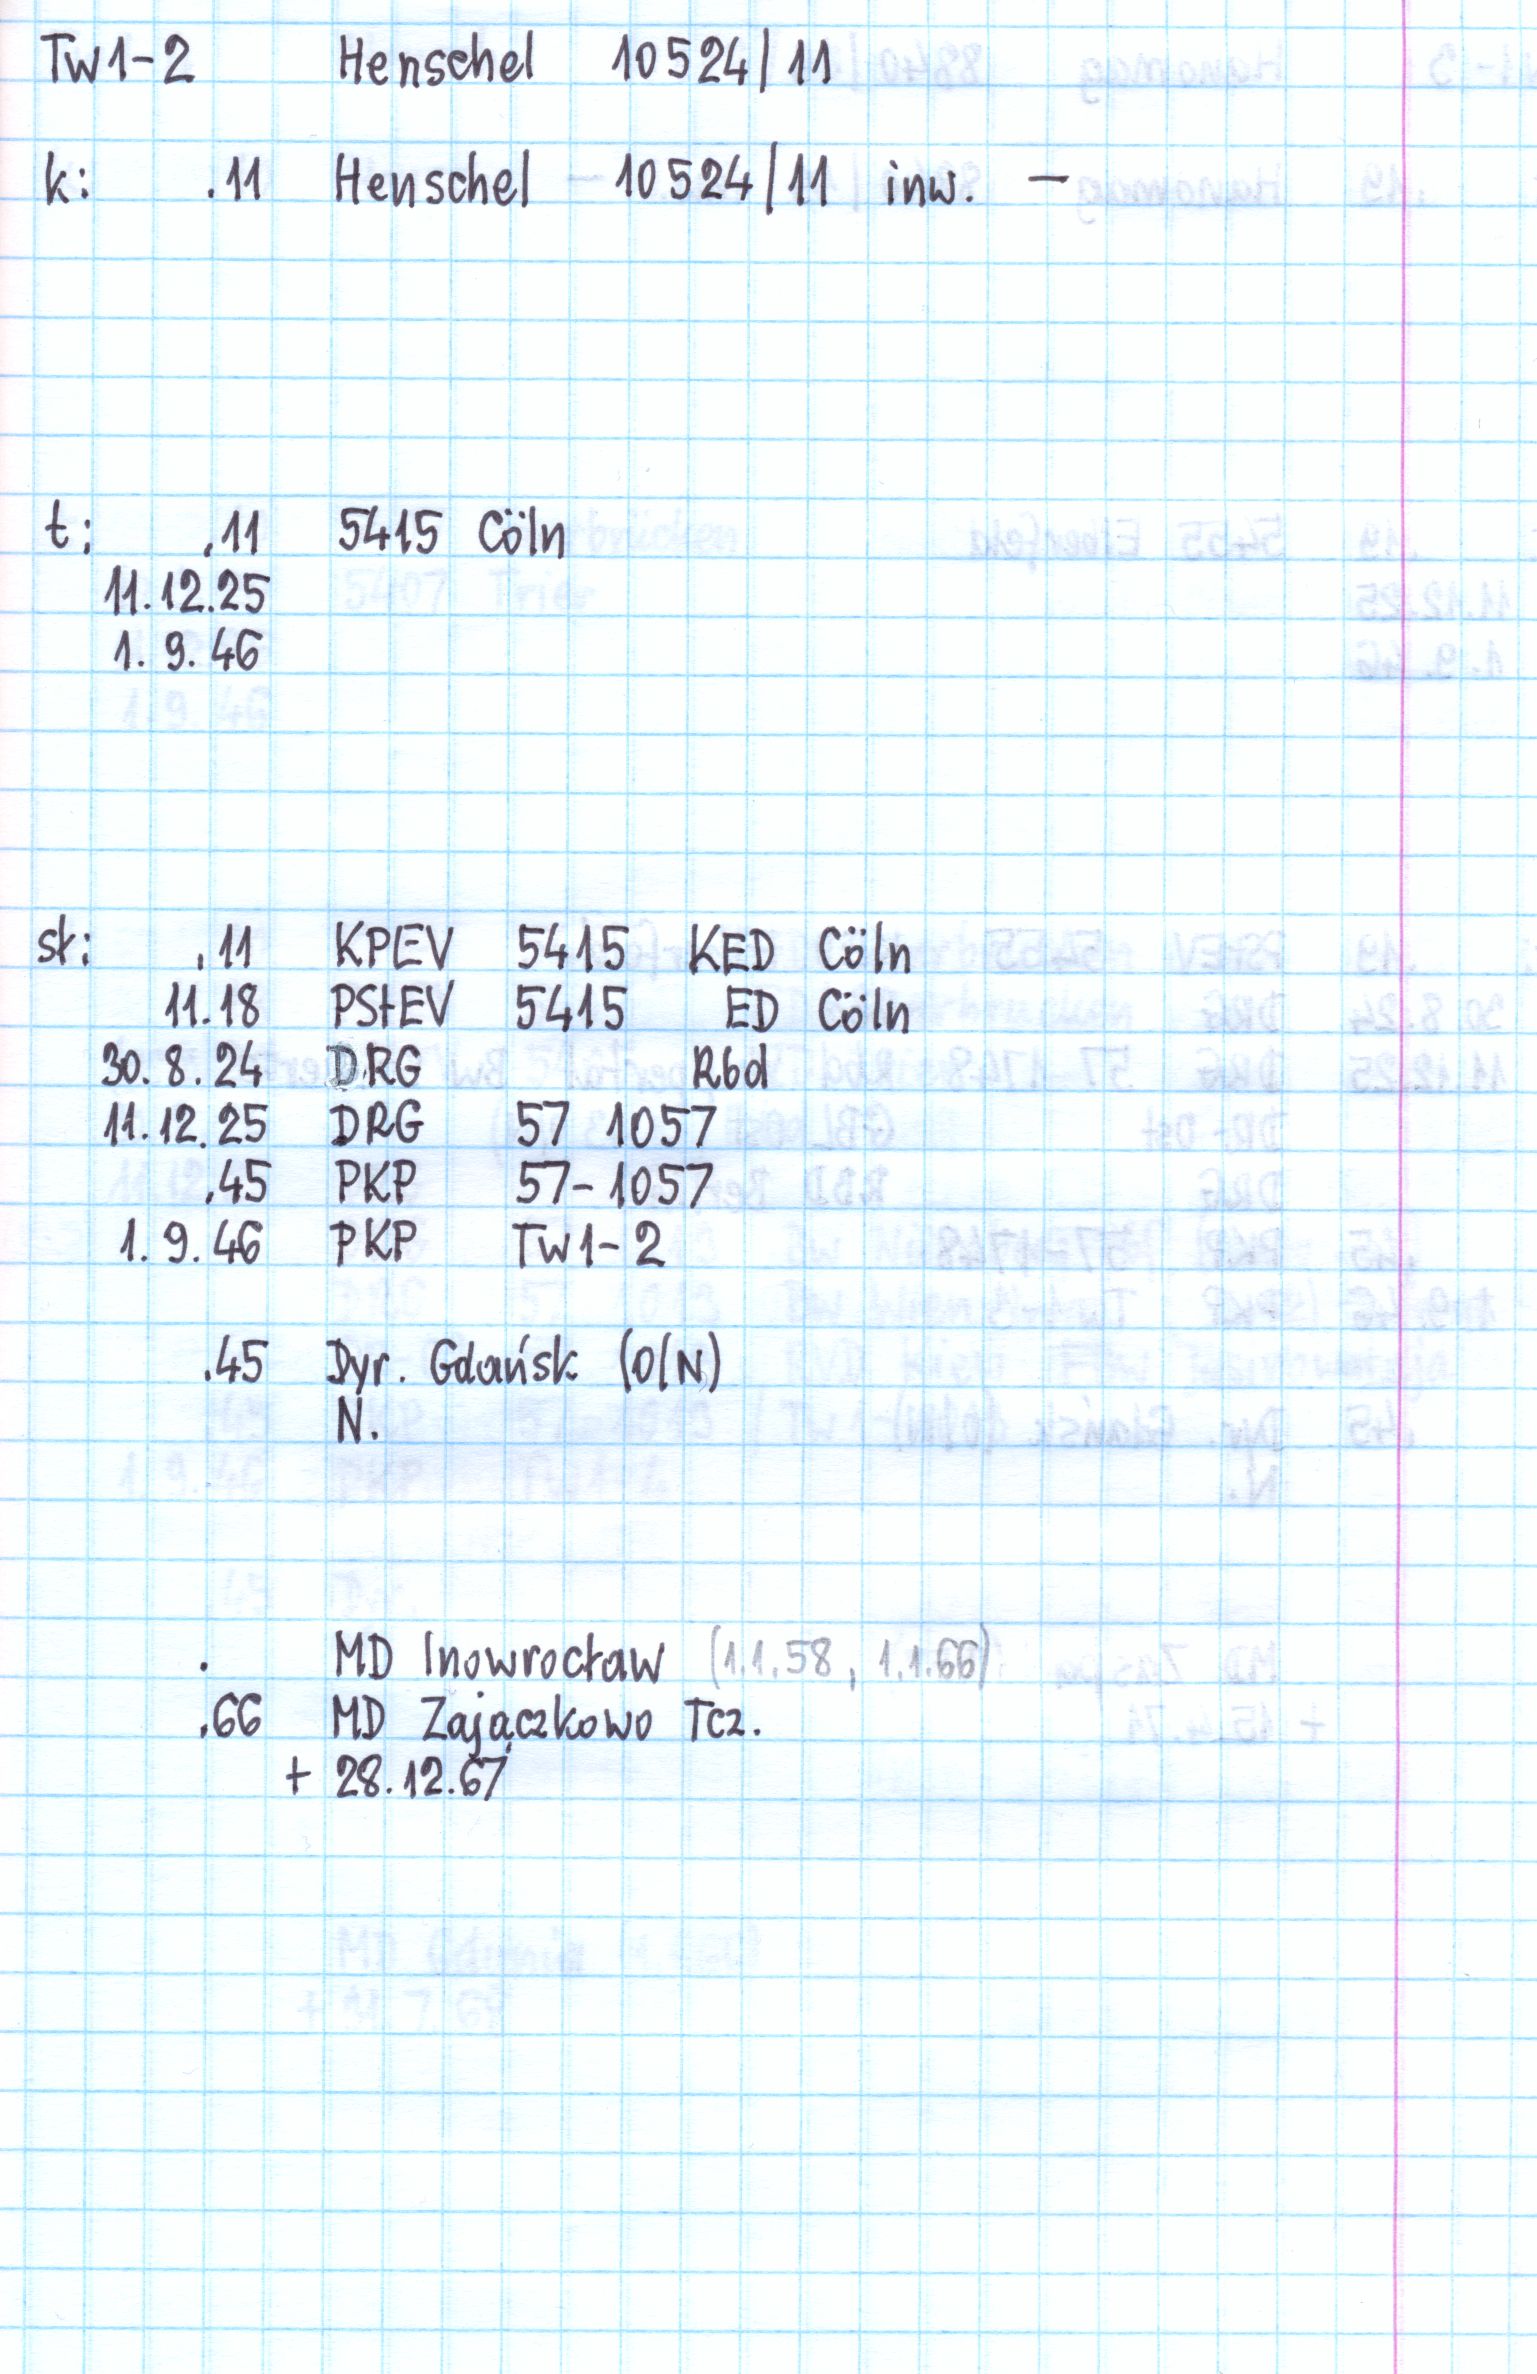 Tw1-2 Henschel 10524/11
k: .11 Henschel - 10524/11 inw. -
t: .11 5415 Cöln
11.12.25
1.9.46
st: .11 KPEV 5415 KED Cöln
11.18 PStEV 5415 ED Cöln
30.8.24 DRG Rbd
11.12.25 DRG 57 1057
.45 PKP 57-1057
1.9.46 PKP Tw1-2
.45 Dyr. Gdańsk (O/N)
N.
. MD Inowrocław (1.1.58, 1.1.66)
.66 MD Zajączkowo Tcz.
+ 28.12.67